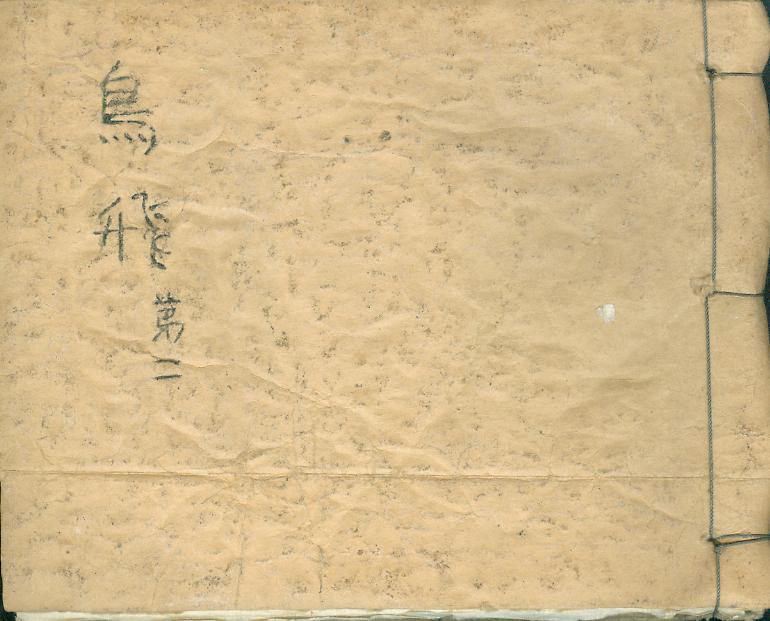 鳥飛
第二